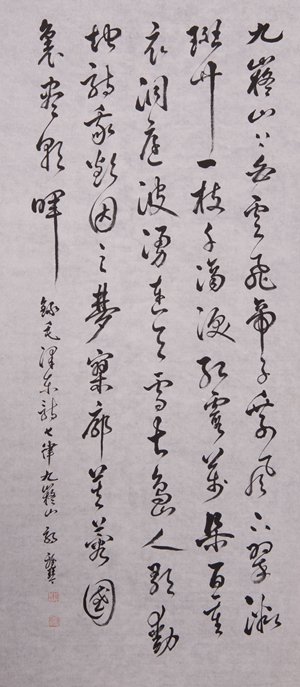 九嶷山上白雲飛帝子乘風下翠微
斑竹一枝千滴淚紅霞萬朵百重
衣洞庭波湧連天雪長島人歌動
地詩我欲因之夢寥廓芙蓉國
裏盡朝暉
錄毛澤東詩七律九嶷山